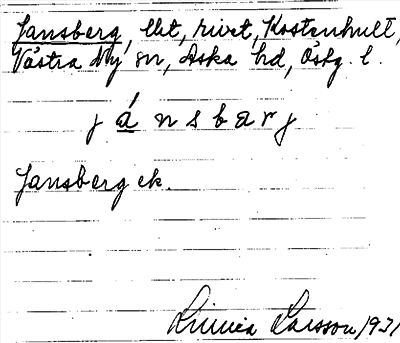 Jansberg, lht, rivet, Kostenhult,
Västra Ny sn, Aska hd, Östg. l.
j á n s b a r j
Jansberg ek.
Linnéa Larsson 1931